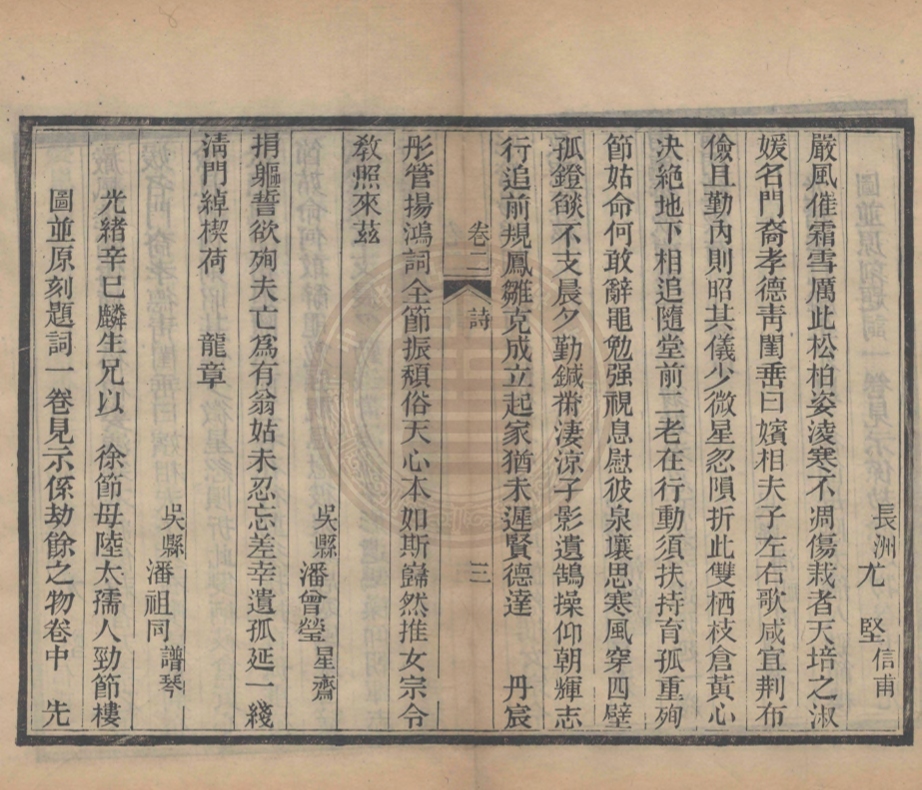 長洲尤堅信甫
嚴風催霜雪厲此松柏姿淩寒不凋傷栽者天培之淑
媛名門裔孝德靑閨垂曰嬪相夫子左右歌咸宜荆布
儉且勤內則昭其儀少微星忽隕折此雙栖枝倉黃心
決絕地下相追隨堂前二老在行動須扶持育孤重殉
節姑命何敢辭黽勉强視息慰彼泉壤思寒風穿四壁
孤鐙燄不支晨夕勤鍼黹淒涼子影遺鵠操仰朝輝志
行追前規鳳雛克成立起家猶未遲賢德達　丹宸
卷二　詩　三
彤管揚鴻詞全節振頹俗天心本如斯巋然推女宗令
敎照來茲
吳縣潘曾瑩星齋
捐軀誓欲殉夫亡爲有翁姑未忍忘差幸遺孤延一綫
淸門綽楔荷　龍章
吳縣潘祖同譜琴
光緖辛巳麟生兄以　徐節母陸太孺人勁節樓
圖並原刻題詞一卷見示係劫餘之物卷中　先